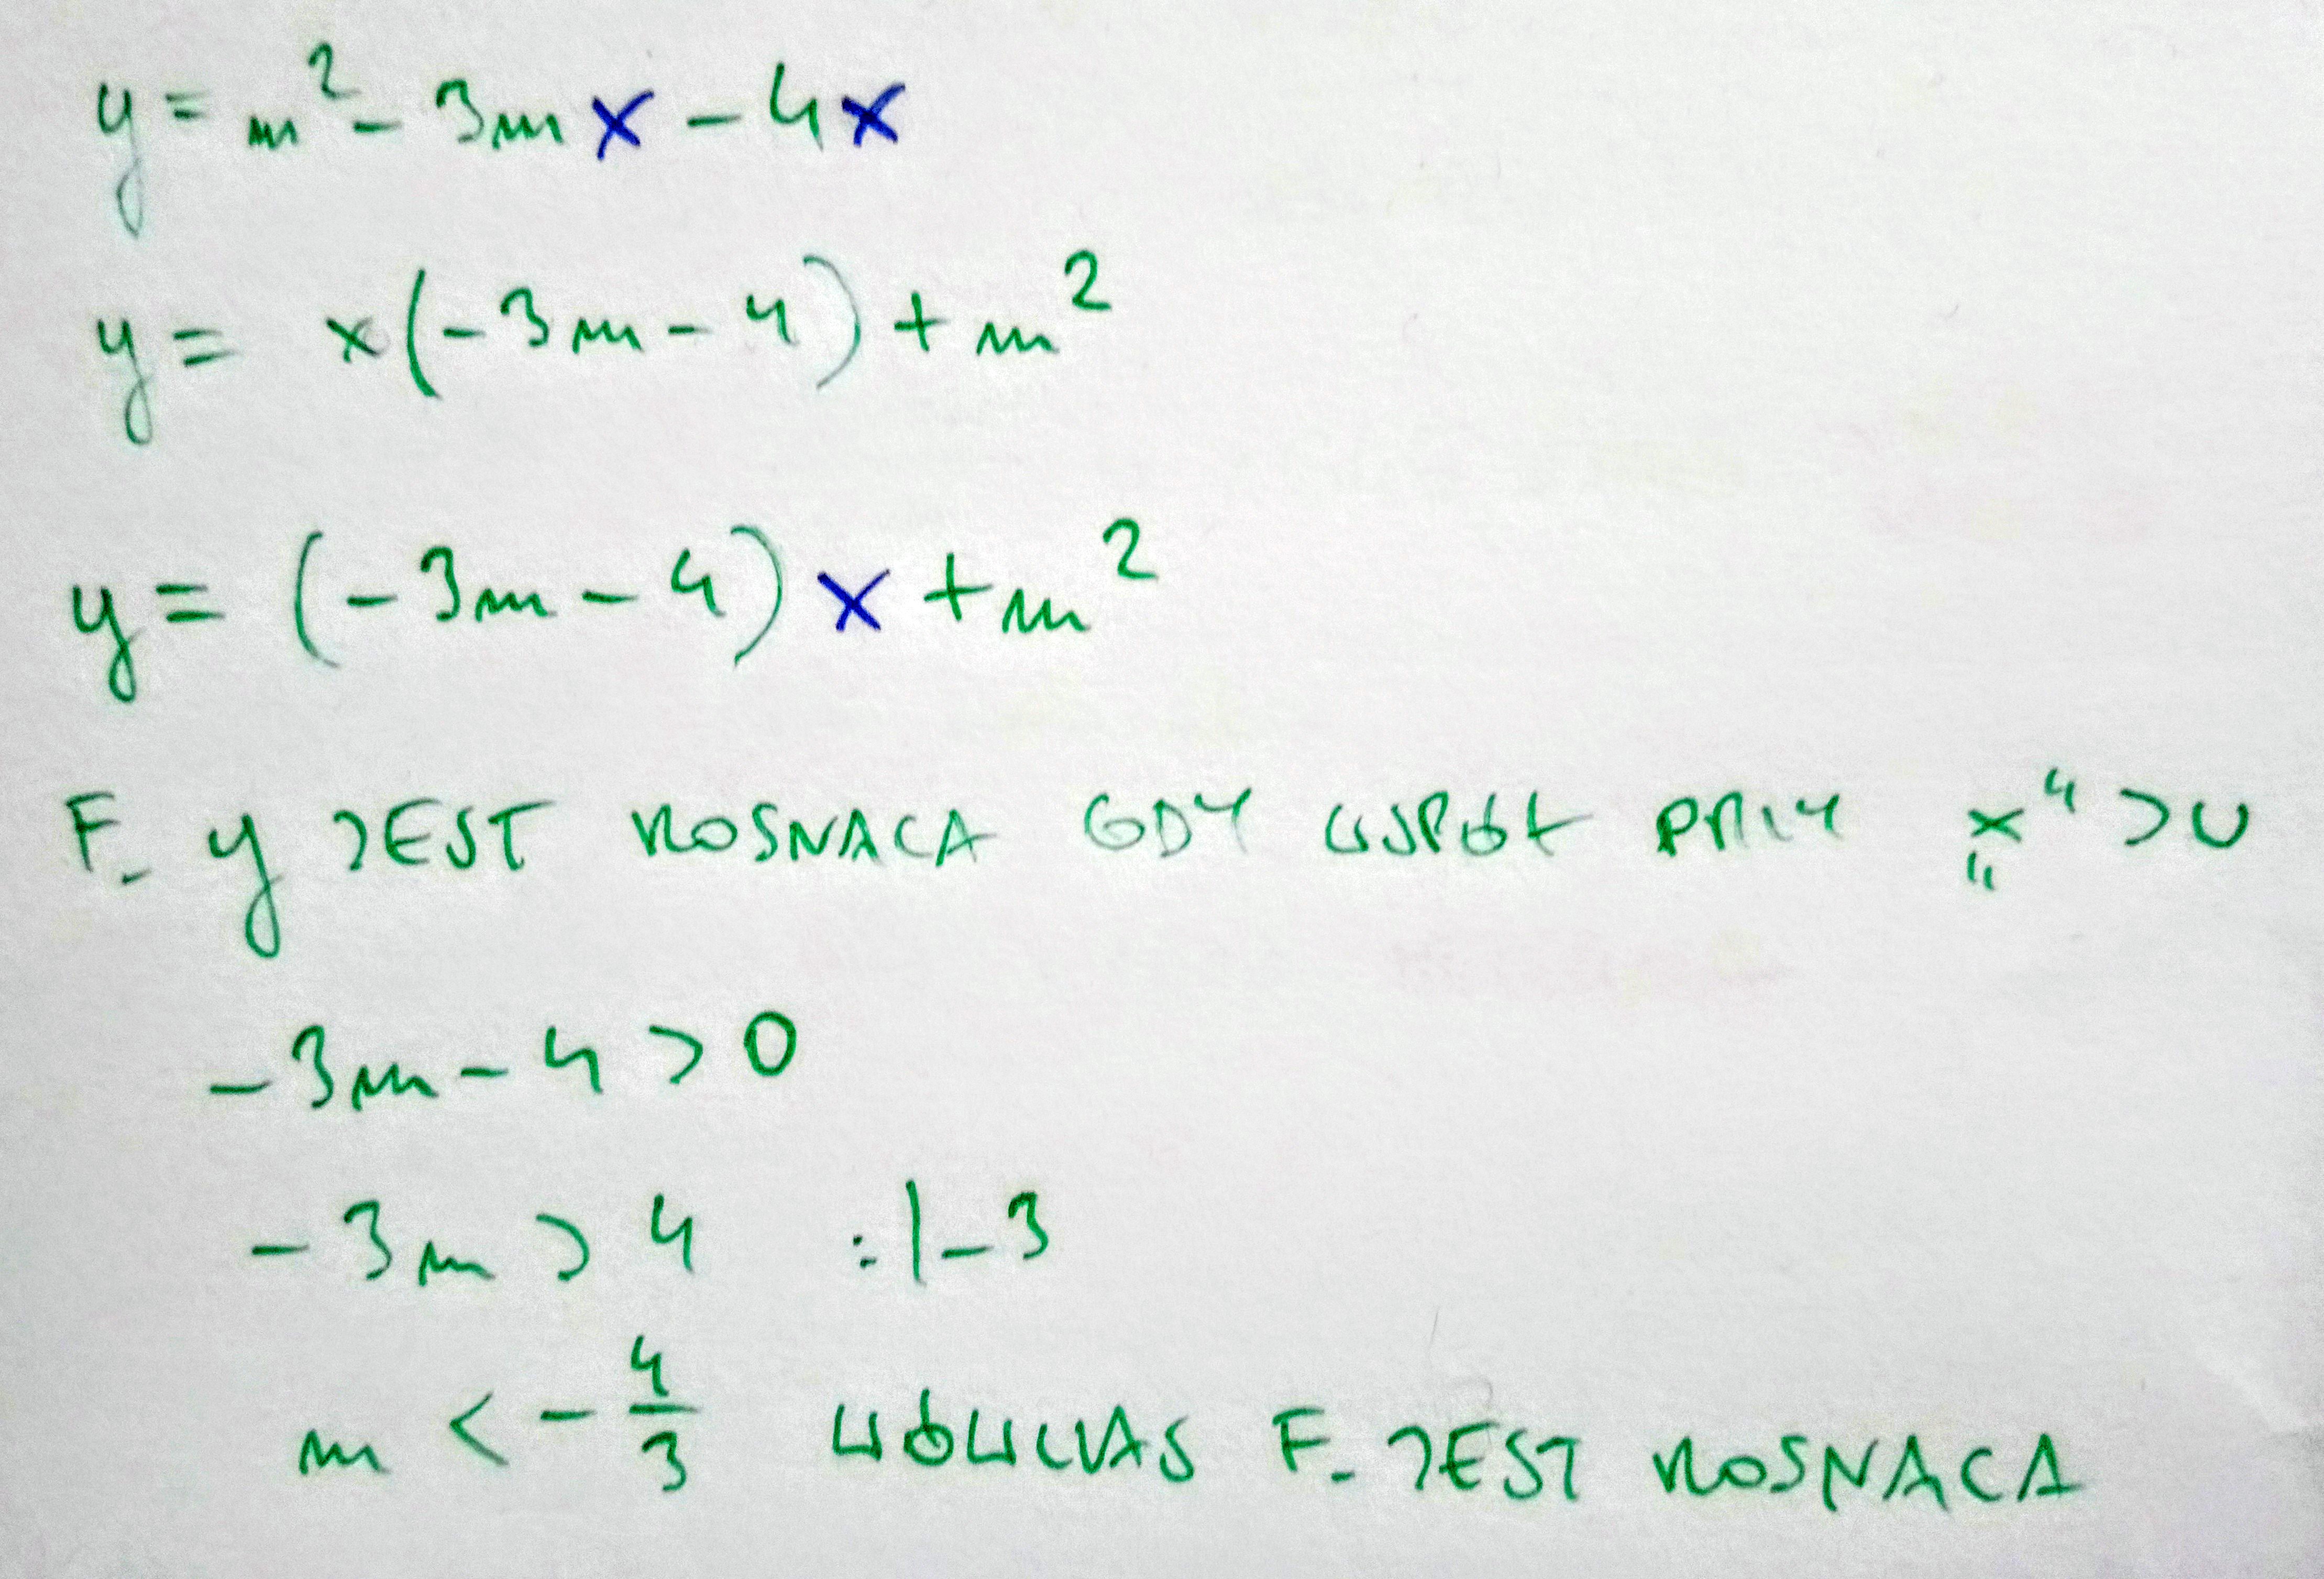 y = m² - 3mx - 4x
y = x(-3m - 4) + m²
y = (-3m - 4)x + m²
F. y JEST ROSNACA GDY WSPÓŁ PRZY „x” > 0
-3m - 4 > 0
-3m > 4 :|-3
m < -4/3 WÓWCZAS F. JEST ROSNACA